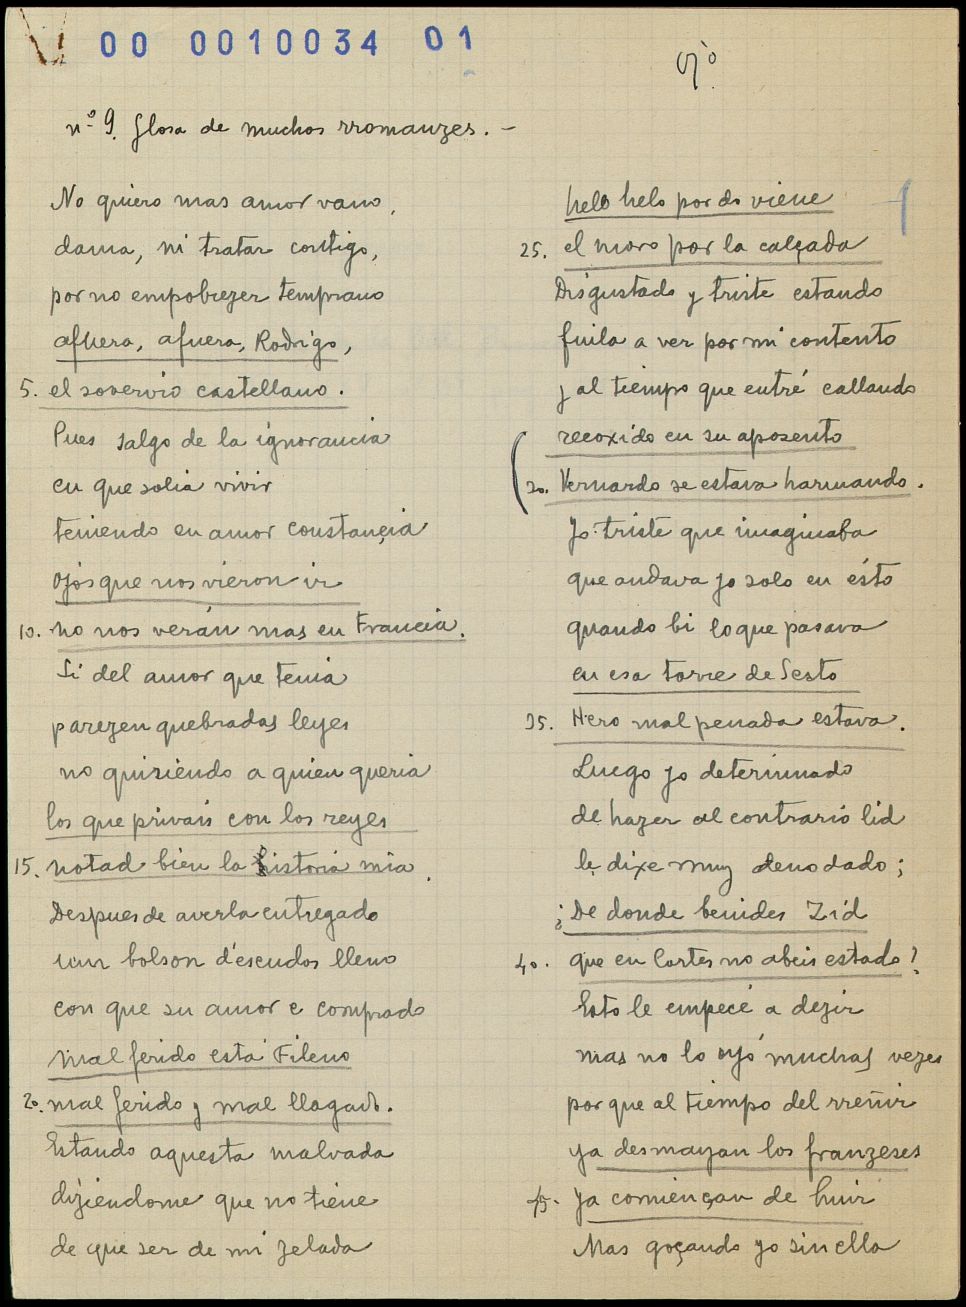 00 0010034 01
ojº
nº 9. Glosa de muchos rromanzes. -
No quiero mas amor vano,
dama, ni tratar contigo,
por no empobrezer temprano
afuera, afuera, Rodrigo,
5. el sovervio castellano.
Pues salgo de la ignorancia
en que solia vivir
teniendo en amor constançia
ojos que nos vieron ir
10. no nos verán mas en Francia.
Si del amor que tenia
parezen quebradas leyes
no quiriendo a quien queria
los que privais con los reyes
15. notad bien la historia mia.
Despues de averla entregado
un bolson d'escudos lleno
con que su amor e comprado
mal ferido está Fileno
20. mal ferido y mal llagado.
Estando aquesta malvada
diziendome que no tiene
de que ser de mi zelada
helo helo por do viene
25. el moro por la calçada
Disgustado y triste estando
fuila a ver por mi contento
y al tiempo que entré callando
recoxido en su aposento
30. Vernardo se estava harmando.
Yo triste que imaginaba
que andava yo solo en ésto
quando bi lo que pasava
en esa torre de Sesto
35. Hero mal penada estava.
Luego yo determinado
de hazer al contrario lid
le dixe muy denodado;
¿De donde benides Zid
40. que en Cortes no abeis estado?
Esto le empecé a dezir
mas no lo oyó muchas vezes
porque al tiempo del rreñir
ya desmayan los franzeses
45. ya comiençan de huir
Mas goçando yo sin ella